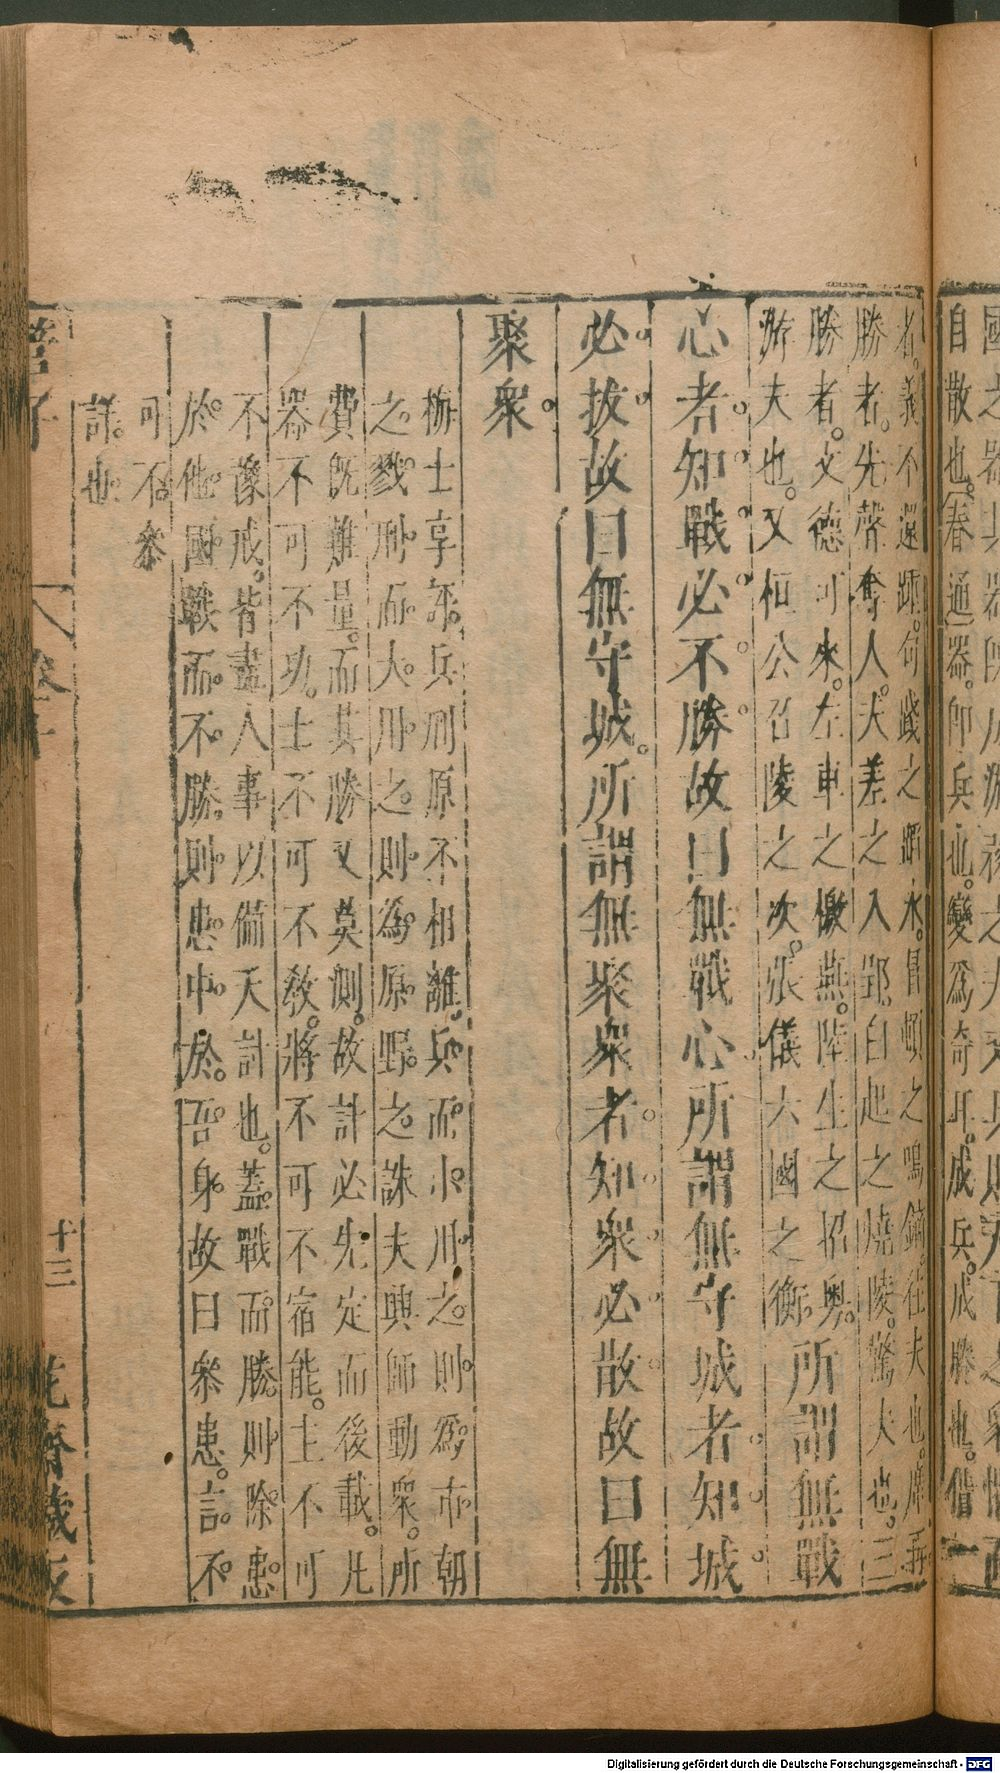 自散也。春通器。即兵也。變為奇耳。成兵。成勝也。借一
者。義不還踵。句踐之蹈水。冒頓之鳴鏑。在夫也。摩再
勝者。先聲奪人。夫差之入郢。白起之燒陵。驚夫也。三
勝者。文德可來。左車之檄燕。陸生之招奧。所謂無戰
游夫也。又桓公召陵之次。張儀六國之衡。
心者。知戰必不勝。故曰無戰心。所謂無守城者。知城
必拔。故曰無守城。所謂無聚衆者。知衆必散。故曰無
聚衆。
梅士享評。兵刑原不相離。兵而小用之。則為市朝
之戮。刑而大用之。則為原野之誅。夫興師動衆。所
費既難量。而其勝又莫測。故計必先定而後載。凡
器不可不功。士不可不敎。將不可不宿能。主不可
不豫戒。皆盡人事以備天討也。蓋戰而勝。則除患
於他國。戰而不勝。則患中於吾身。故曰衆患。言不
可不叅
詳也。
管子
卷
十三
花齋藏板
Digitalisierung gefördert durch die Deutsche Forschungsgemeinschaft - DFG